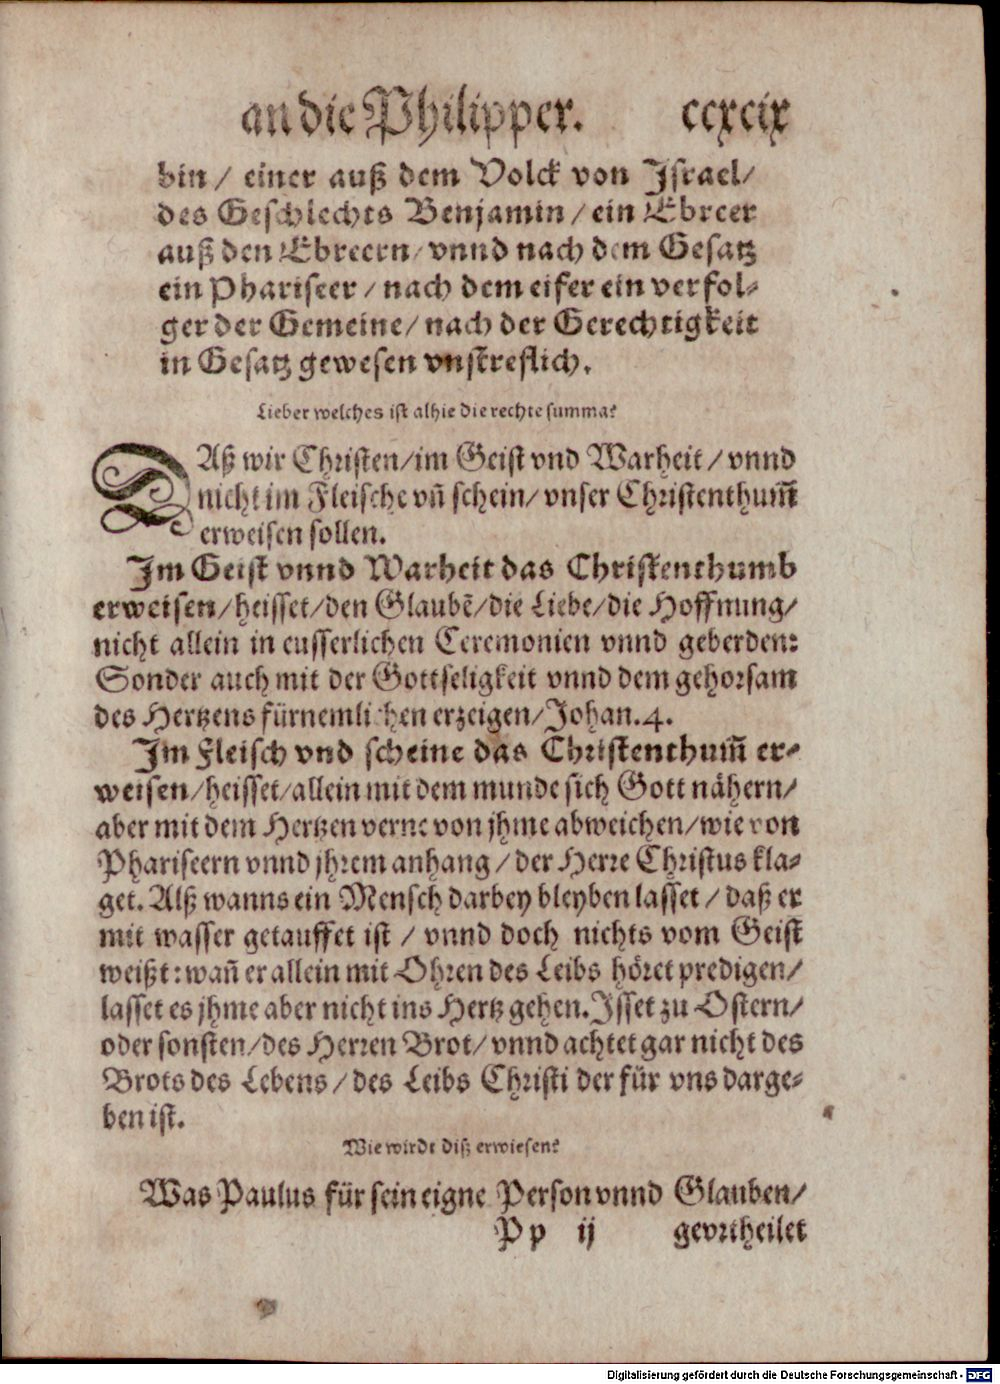 an die Philipper. ccxcix
bin / einer auß dem Volck von Jsrael/
des Geschlechts Benjamin / ein Ebreer
auß den Ebreern/ vnnd nach dem Gesatz
ein Phariseer / nach dem eifer ein verfol-
ger der Gemeine/ nach der Gerechtigkeit
in Gesatz gewesen vnstreflich.
Lieber welches ist alhie die rechte summa?
DAß wir Christen/im Geist vnd Warheit / vnnd
nicht im Fleische vñ schein/ vnser Christenthum̃
erweisen sollen.
Jm Geist vnnd Warheit das Christenthumb
erweisen/heisset/den Glaubẽ/die Liebe/die Hoffnung/
nicht allein in eusserlichen Ceremonien vnnd geberden:
Sonder auch mit der Gottseligkeit vnnd dem gehorsam
des Hertzens fürnemlichen erzeigen/Johan.4.
Jm Fleisch vnd scheine das Christenthum̃ er-
weisen/heisset/allein mit dem munde sich Gott nähern/
aber mit dem Hertzen verne von jhme abweichen/wie von
Phariseern vnnd jhrem anhang / der Herre Christus kla-
get. Alß wanns ein Mensch darbey bleyben lasset / daß er
mit wasser getauffet ist / vnnd doch nichts vom Geist
weißt: wañ er allein mit Ohren des Leibs höret predigen/
lasset es jhme aber nicht ins Hertz gehen. Jsset zu Ostern/
oder sonsten/des Herren Brot/ vnnd achtet gar nicht des
Brots des Lebens / des Leibs Christi der für vns darge-
ben ist.
Wie wirdt diß erwiesen?
Was Paulus für sein eigne Person vnnd Glauben/
Pp ij gevrtheilet
Digitalisierung gefördert durch die Deutsche Forschungsgemeinschaft - DFG